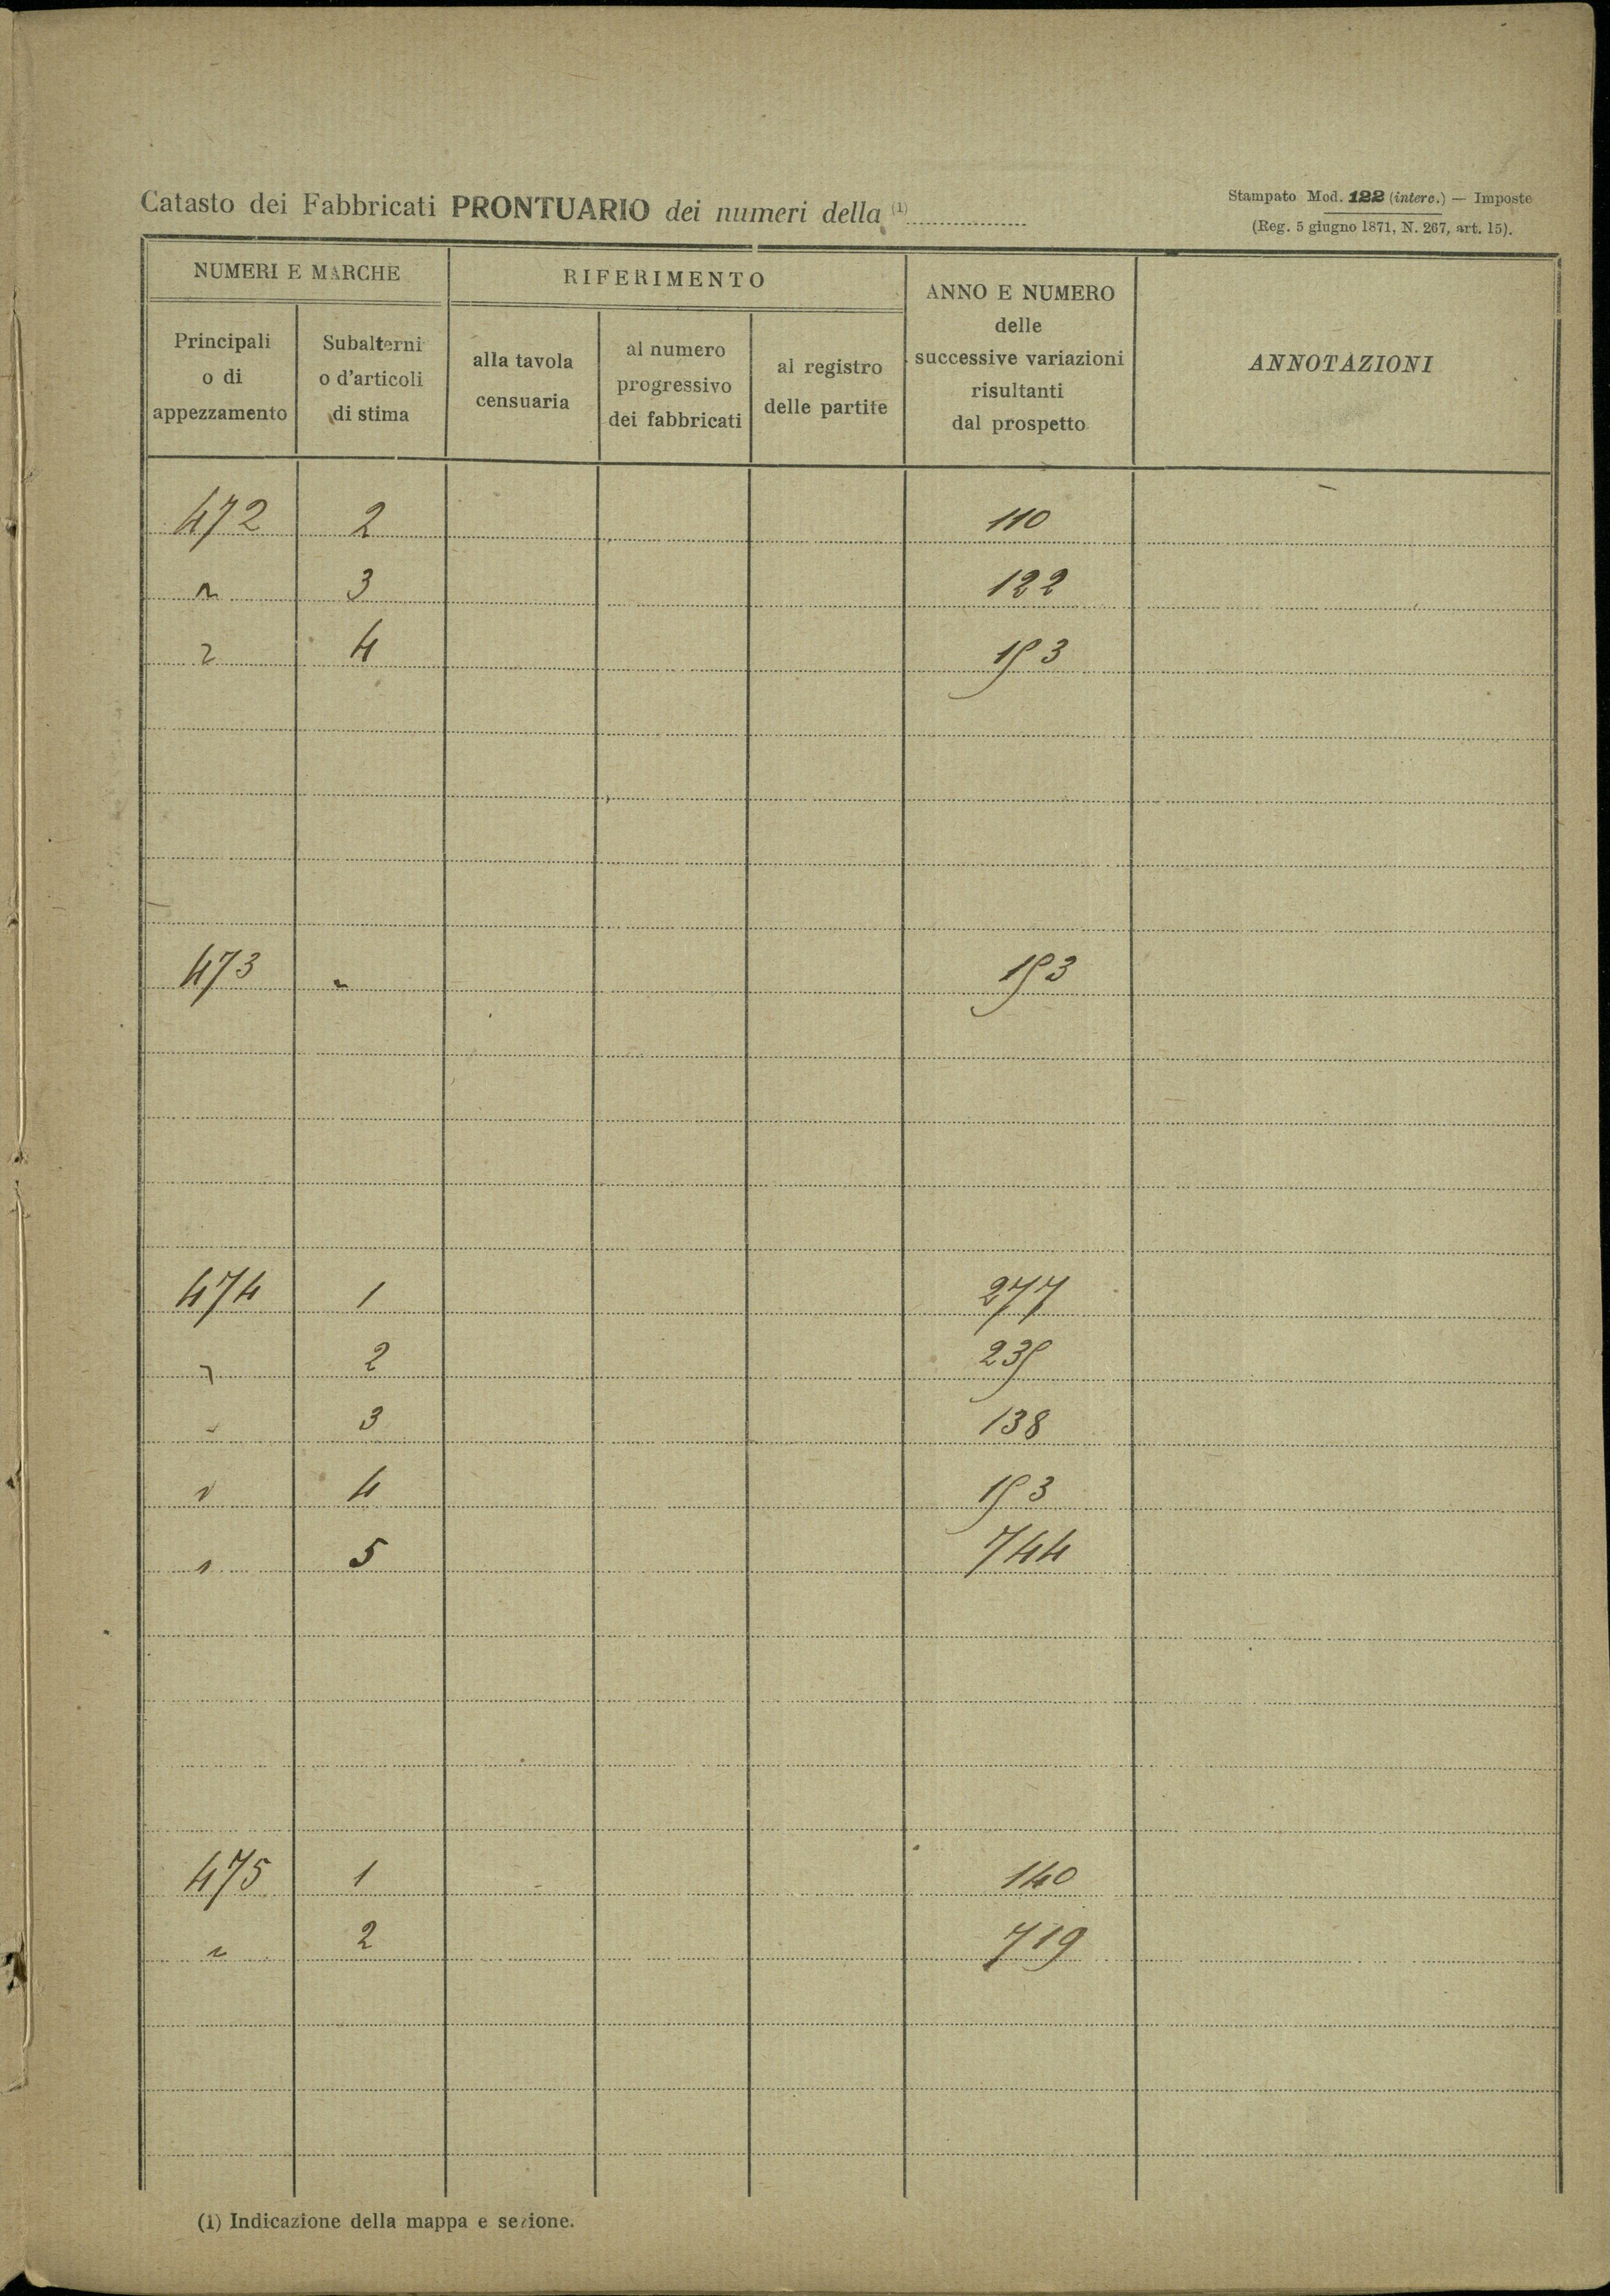 Catasto dei Fabbricati PRONTUARIO dei numeri della (1)
Stampato Mod. 122 (interc.) — Imposte
(Reg. 5 giugno 1871, N. 267, art. 15).
NUMERI E MARCHE
RIFERIMENTO
ANNO E NUMERO
delle
successive variazioni
risultanti
dal prospetto
ANNOTAZIONI
Principali
o di
appezzamento
Subalterni
o d'articoli
di stima
alla tavola
censuaria
al numero
progressivo
dei fabbricati
al registro
delle partite
472 2 110
" 3 122
" 4 153
473 " 153
474 1 277
" 2 235
" 3 138
" 4 153
" 5 744
475 1 140
" 2 719
(1) Indicazione della mappa e sezione.